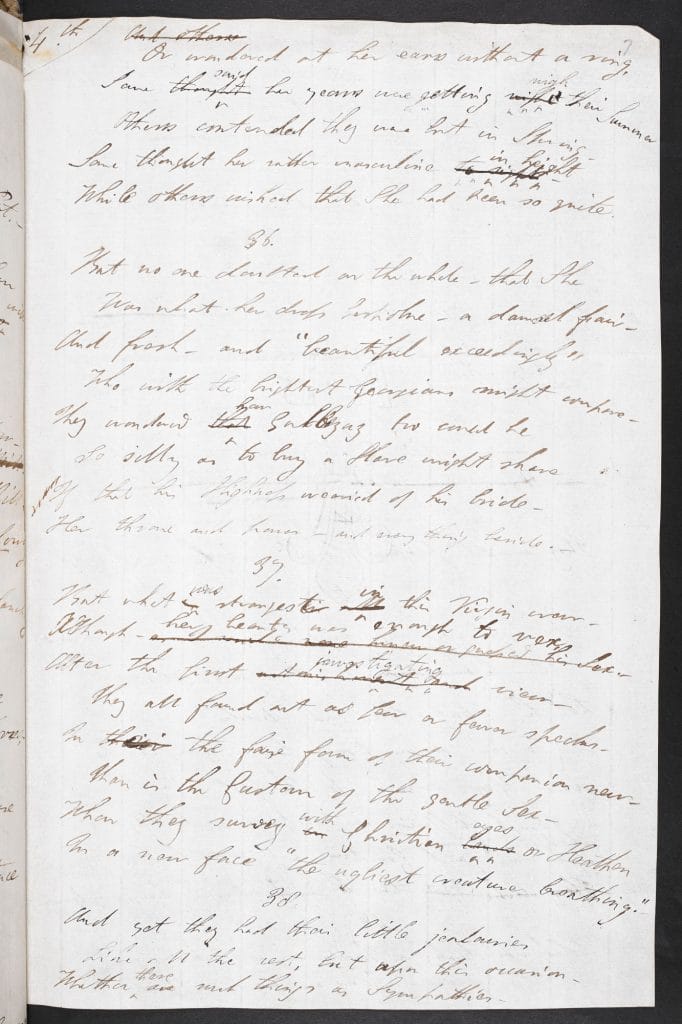 4th And others
Or wondered at her ears without a ring,
Some thought said her years were getting nigh their Summer
Others contended they were but in Spring –
Some thought her rather masculine in height
While others wished that She had been so quite.
36.
But no one doubted on the whole – that She
Was what her dress bespoke – a damsel fair –
And fresh – and "beautiful exceedingly"
Who with the brightest Georgians might compare –
They wondered that how Gulbeyaz too could be
So silly as to buy a Slave might share
If that his Highness wearied of his bride –
Her throne and power – and every thing beside. –
37.
But what was strangest in this Virgin crew –
Although her beauty was enough to vex
After the first investigating view –
They all found out as few or fewer specks –
In their the fair form of their companion new –
Than is the Custom of the gentle Sex –
When they survey with in Christian eyes or Heathen
In a new face "the ugliest creature breathing." –
38.
And yet they had their little jealousies
Like all the rest, but upon this occasion –
Whether there are such things as Sympathies –